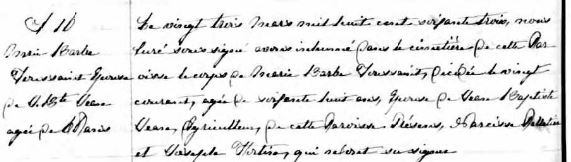 S 10
Marie Barbe
Toussaint Epouse
de J. Bte Jean
agée de
Le vingt trois mars mil huit cent soixante trois, nous
Curé sous signé avons inhumé dans le cimetière de cette Par
oisse le corps de Marie Barbe Toussaint, décédée le vingt
courant, agée de soixante huit ans, Epouse de Jean Baptiste
Jean, Agriculteur, de cette Paroisse. Présens, Narcisse Pelletier
et qui n'ont su signer